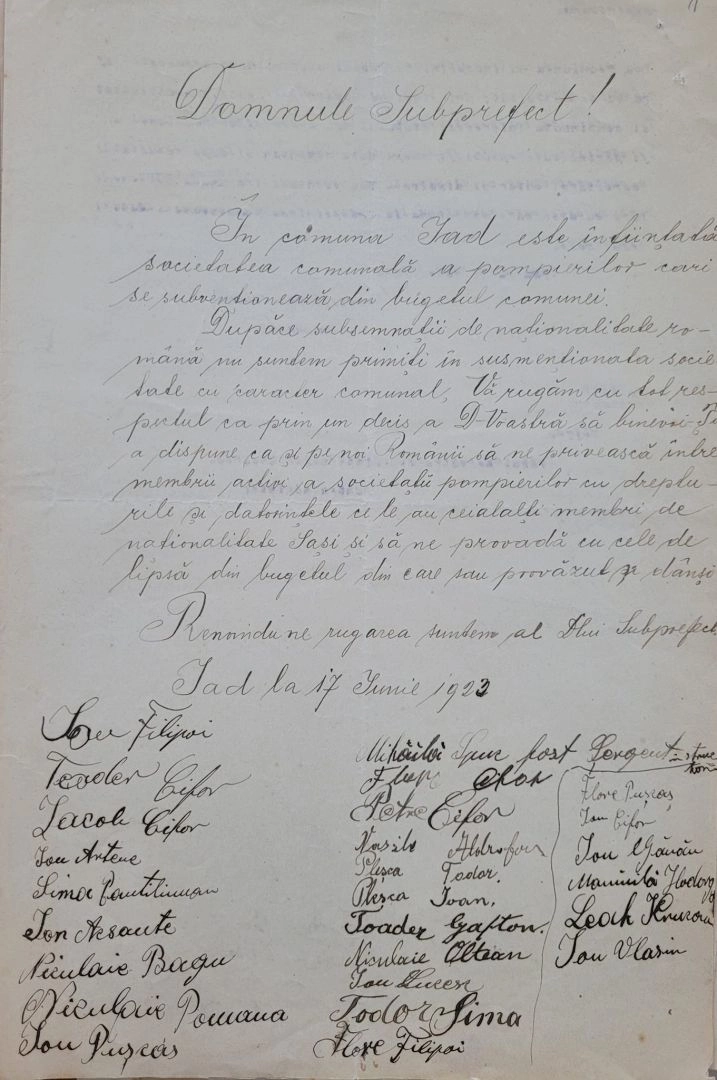 Domnule Subprefect!
În comuna Iad este înființată
societatea comunală a pompierilor cari
se subvenționează din bugetul comunei.
Dupăce subsemnații de naționalitate ro-
mână nu suntem primiti în susmenționata socie
tate cu caracter comunal, Vă rugăm cu tot res-
pectul ca prin un decis a D-Voastră să binevoi-Ți
a dispune ca și pe noi Românii să ne privească între
membrii activi a societății pompierilor cu dreptu-
rile și datorintele ce le au ceialalți membri de
naționalitate Sași și să ne provadă cu cele de
lipsă din bugetul din care sau provăzut și dânși
Renoindu ne rugarea suntem al Dlui Subprefect
Iad la 17 Iunie 1923
Filipoi
Teoader Cifor
Iacob Cifor
Ion Artene
Sima
Ion
Niculaie Bagu
Niculaie Pomana
Ion Pușcaș
Mihăilă fost Sergent
Petre Cifor
Vasile
Pleșca Todor.
Pleșca Ioan.
Toader Gafton.
Niculaie Oltean
Ion
Todor Sima
Flore Filipoi
Flore Pușcaș
Ion Cifor
Ion
Ion Vlasin